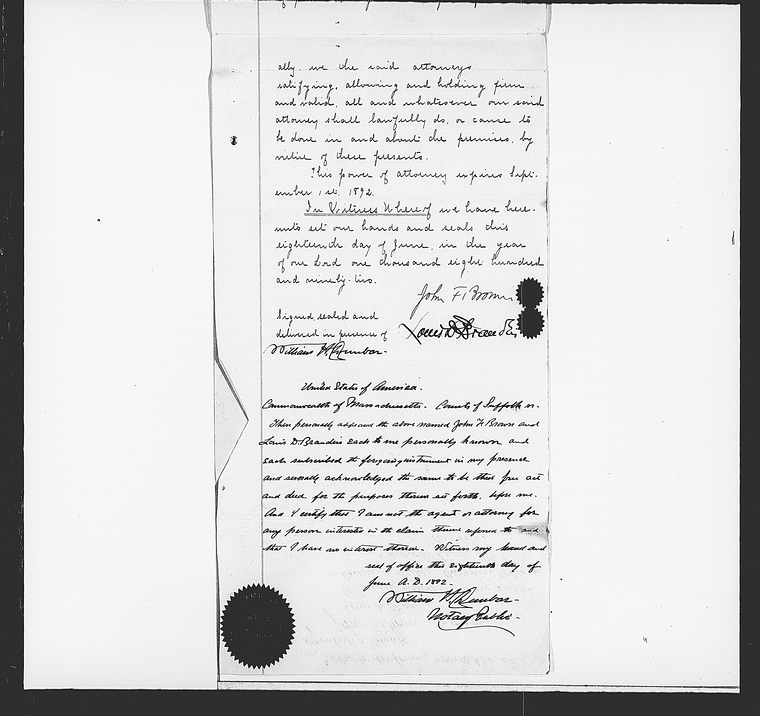 ally. we the said attorneys
satisfying, allowing and holding firm
and valid, all and whatsoever our said
attorney shall lawfully do, or cause to
be done in and about the premises, by
virtue of these presents.
This power of attorney expires Sept-
ember 1st. 1892.
In Witness Whereof we have here-
unto set our hands and seals this
eighteenth day of June, in the year
of our Lord one thousand eight hundred
and ninety-two.
John F. Brown
Signed, sealed and
delivered in presence of
Louis D. Brandeis
William H. Dunbar.
United States of America.
Commonwealth of Massachusetts. County of Suffolk ss.
Then personally appeared the above named John F. Brown and
Louis D. Brandeis each to me personally known and
each subscribed the foregoing instrument in my presence
and severally acknowledged the same to be their free act
and deed for the purposes therein set forth, before me.
And I certify that I am not the agent or attorney for
any person interested in the claim therein referred to and
that I have no interest therein. Witness my hand and
seal of office this eighteenth day of
June A.D. 1892.
William H. Dunbar.
Notary Public.